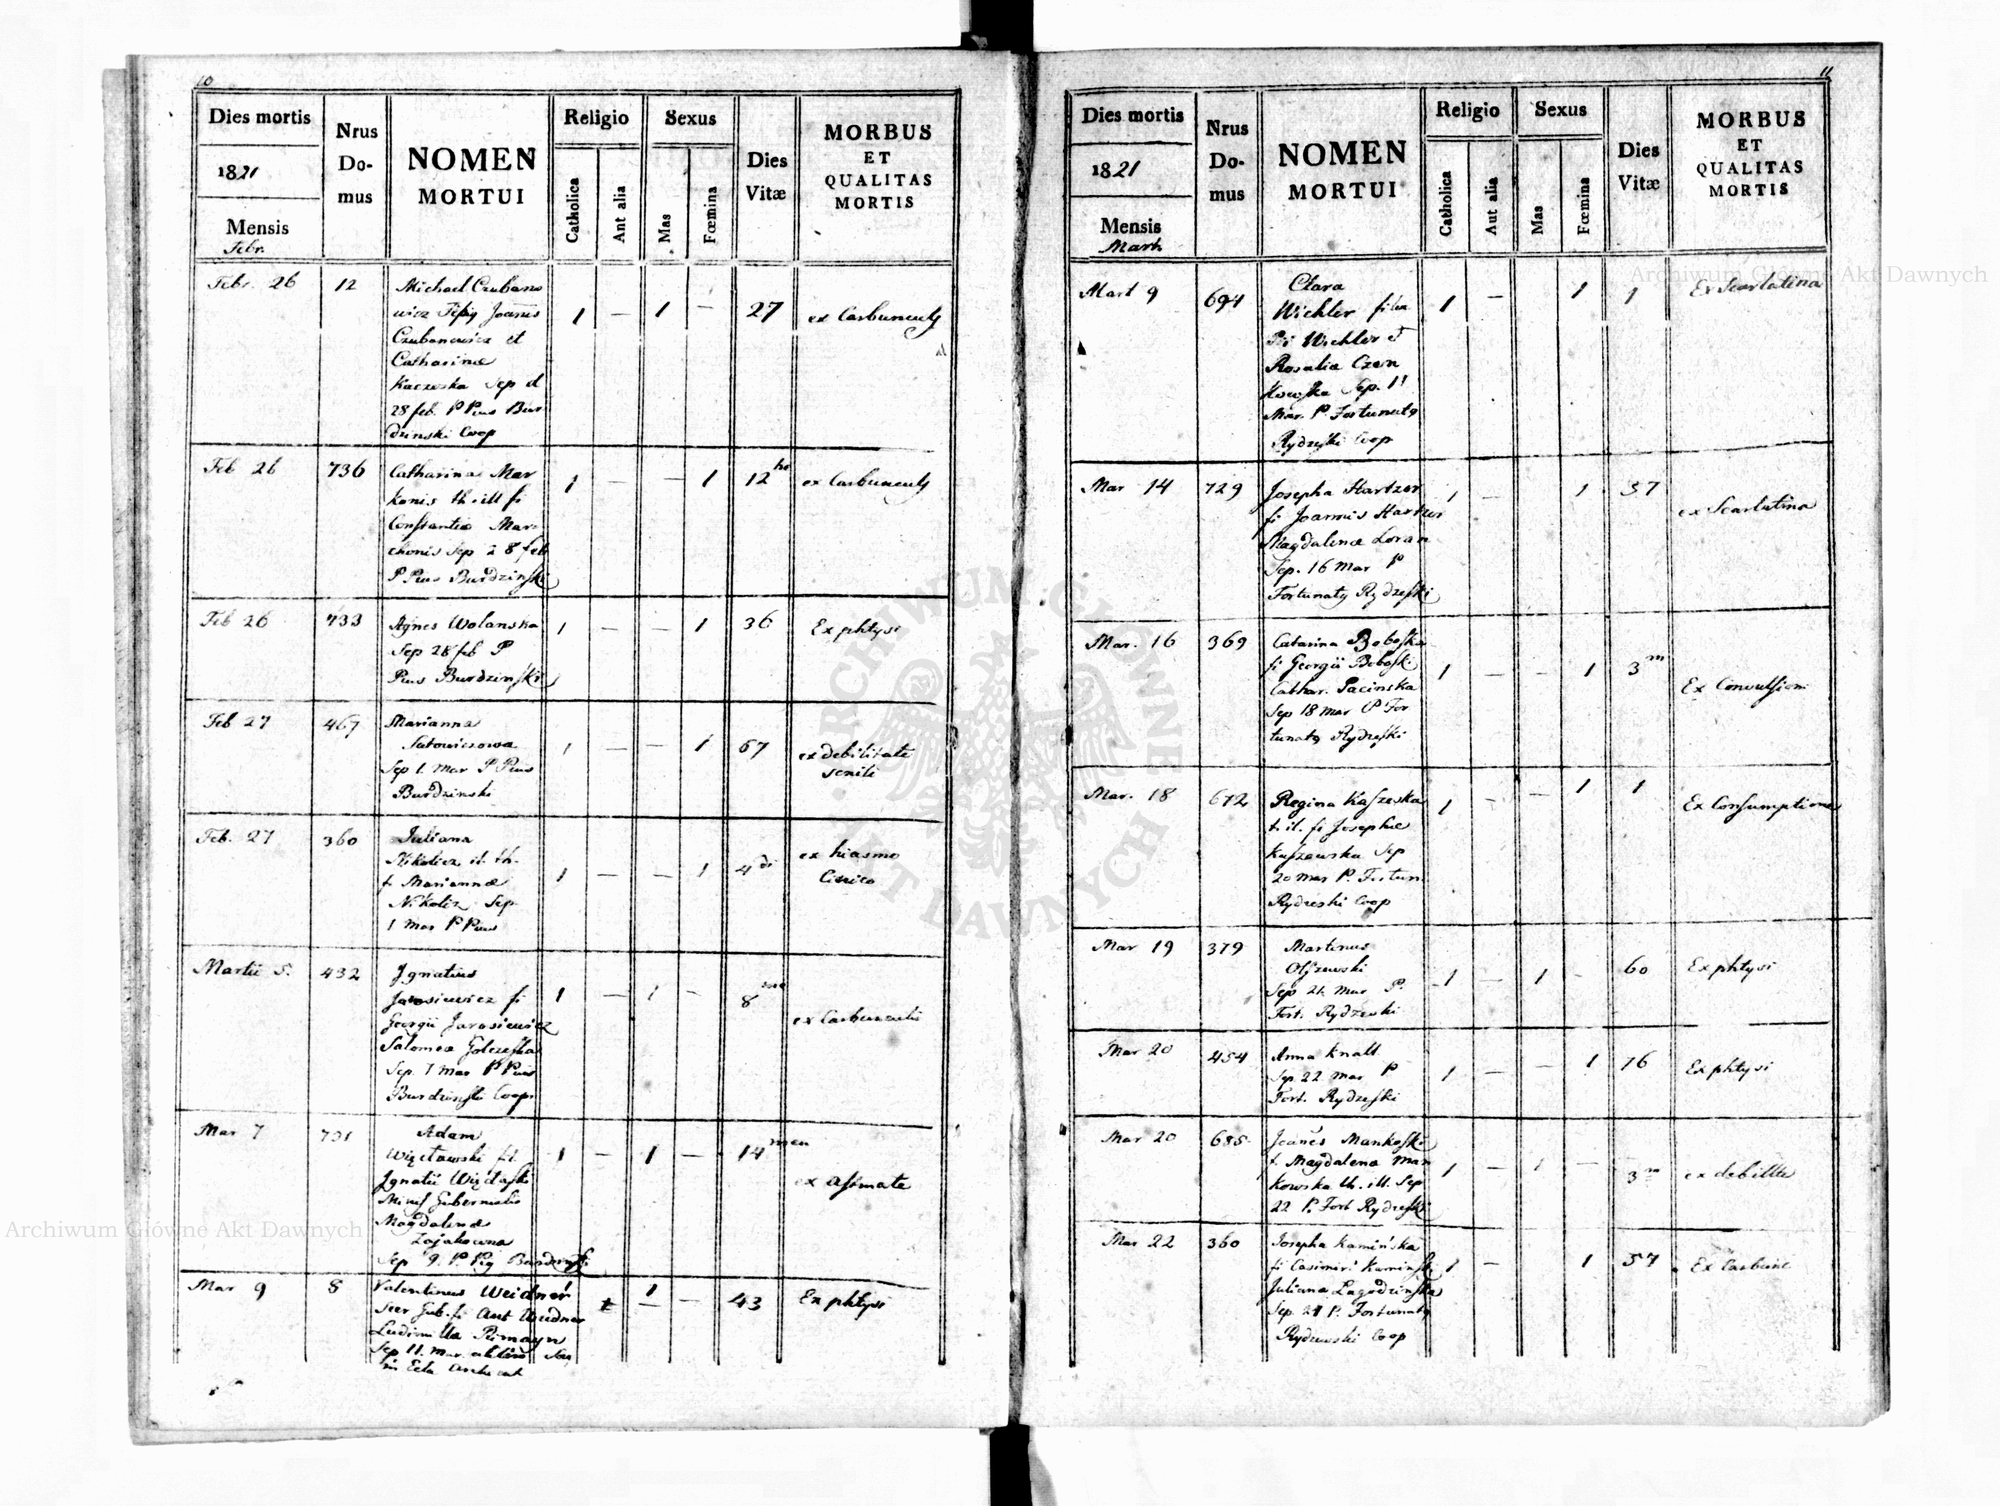 10
Dies mortis
1821
Mensis
Febr.
Nrus
Do-
mus
NOMEN
MORTUI
Religio
Catholica
Ant alia
Sexus
Mas
Fœmina
Dies
Vitæ
MORBUS
ET
QUALITAS
MORTIS
Febr. 26
12
Michael Czubano
wicz Joannis
Czubanowicz et
Catharinæ
Kaczeska Sep d
28 feb. P Pius Bur
dzinski Coop
1 — 1 —
27
ex Carbunculis
Feb 26
736
Catharina Mar
konis th. ill fi
Constantiæ Mar-
chonis Sep 28 feb
P Pius Burdzinski
1 — — 1
12 ho
ex Carbunculis
Feb 26
733
Agnes Wolanska
Sep 28 feb P
Pius Burdzinski
1 — — 1
36
Ex phtysi
Feb 27
467
Marianna
Sep 1. Mar P Pius
Burdzinski
1 — — 1
67
ex debilitate
senili
Feb. 27
360
Juliana
Nikolicz il. th.
f. Mariannæ
Nikolicz Sep
1 Mar P Pius
1 — — 1
4 di
ex
Martii 5.
432
Ignatius
Jarosiewicz fi
Georgii Jarosiewicz
Salomeæ
Sep. 7 Mar P Pius
Burdzinski Coop.
1 — 1 —
8
ex Carbunculis
Mar 7
731
Adam
fil.
Ignatii
Magdalenæ
Zajakowna
Sep 9. P. Pius Burdzinski
1 — 1 —
14 men
ex Astmate
Mar 9
8
Valentinus Weidner
fi Ant Weidner
Sep 11. Mar.
1 — 1 —
43
Ex phtysi
11
Dies mortis
1821
Mensis
Mart.
Nrus
Do-
mus
NOMEN
MORTUI
Religio
Catholica
Aut alia
Sexus
Mas
Fœmina
Dies
Vitæ
MORBUS
ET
QUALITAS
MORTIS
Mart 9
694
Clara
Wichler filia
Wichler et
Rosalia Czern
kowska Sep. 11
Mar. P. Fortunatus
Rydzeski Coop
1 — 1
1
Ex Scarlatina
Mar 14
729
Josepha Hartzer
fi Joannis Hartzer
Magdalenæ Loran
Sep. 16 Mar P
Fortunatus Rydzeski
1 — 1
37
ex Scarlatina
Mar. 16
369
Catarina Boboska
fi Georgii Boboski
Cathar. Pacinska
Sep 18 Mar P For
tunatus Rydzeski
1 — — 1
3 m
Ex Convulsioni
Mar. 18
672
Regina Kaszeska
t. il. fi Josephæ
Kaszewska Sep
20 Mar P. Fortun.
Rydzeski Coop
1 — — 1
1
Ex Consumptione
Mar 19
379
Martinus
Olszewski
Sep 21. Mar P.
Fort. Rydzeski
1 — 1 -
60
Ex phtysi
Mar 20
454
Anna Knall
Sep 22 Mar P
Fort. Rydzeski
1 — — 1
76
Ex phtysi
Mar 20
685
Joanes Mankoski
f. Magdalena Man
kowska th. ill. Sep
22 P. Fort Rydzeski
1 — 1 —
3 m
ex debilit
Mar 22
360
Josepha Kamińska
fi Casimiri Kaminski
Juliana Zagodzinska
Sep. 24 P. Fortunatus
Rydzewski Coop
1 — 1
57
Ex Carbunc
Archiwum Główne Akt Dawnych
Archiwum Główne Akt Dawnych
ARCHIWUM GŁÓWNE
AKT DAWNYCH